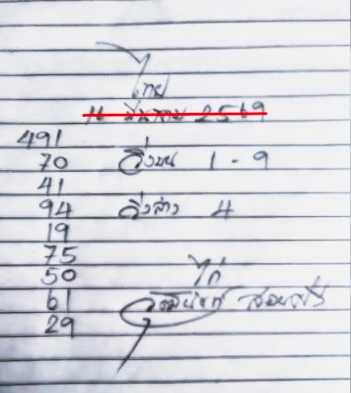 ไทย
16 มีนาคม 2569
491
70 วิ่งบน 1 - 9
41
94 วิ่งล่าง 4
19
75
50 ไก่
61
29